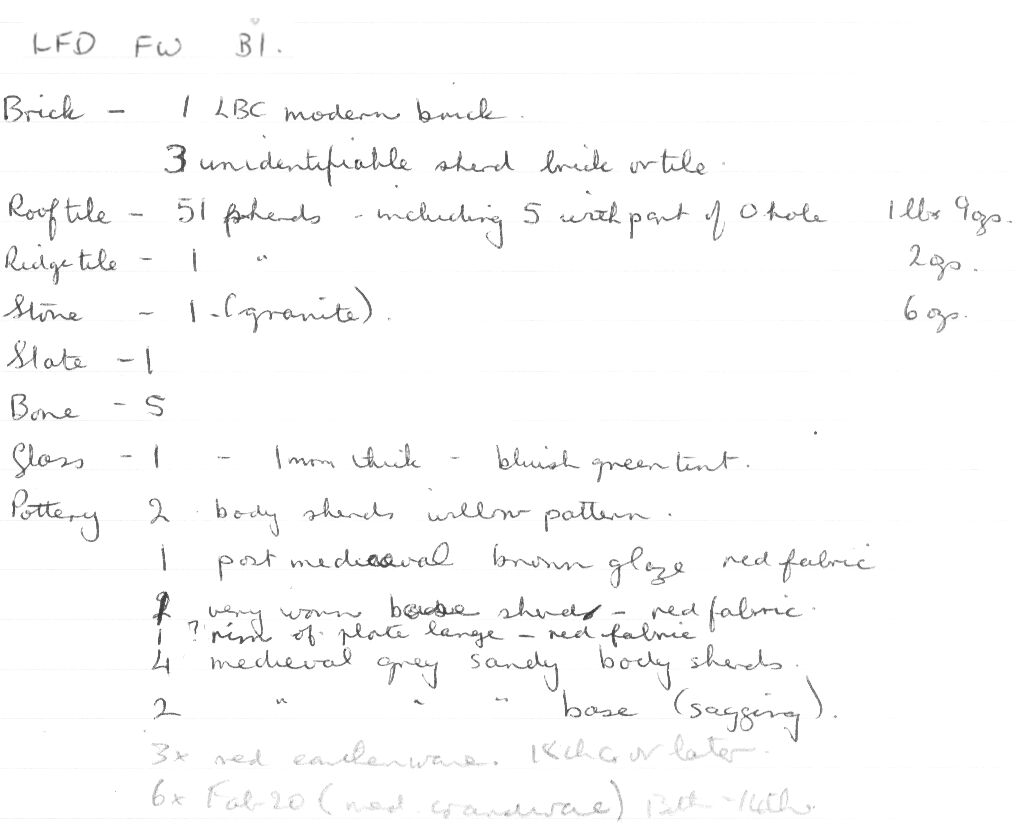 LFD FW B1.
Brick - 1 LBC modern brick.
3 unidentifiable sherd brick or tile.
Rooftile - 51 sherds - including 5 with part of O hole 1 lbs 9ozs.
Ridgetile - 1 " 2ozs.
Stone - 1 - (granite). 6 ozs.
Slate - 1
Bone - 5
Glass - 1 - 1mm thick - bluish green tint.
Pottery 2 body sherds willow pattern.
1 post medieval brown glaze red fabric
very worn base sherd - red fabric.
1 ? rim of plate large - red fabric
4 medieval grey sandy body sherds.
2 " " " base (sagging).
3x red earthenware. 18th c or later.
6x Fab 20 (med. coarseware) 12th - 14th.